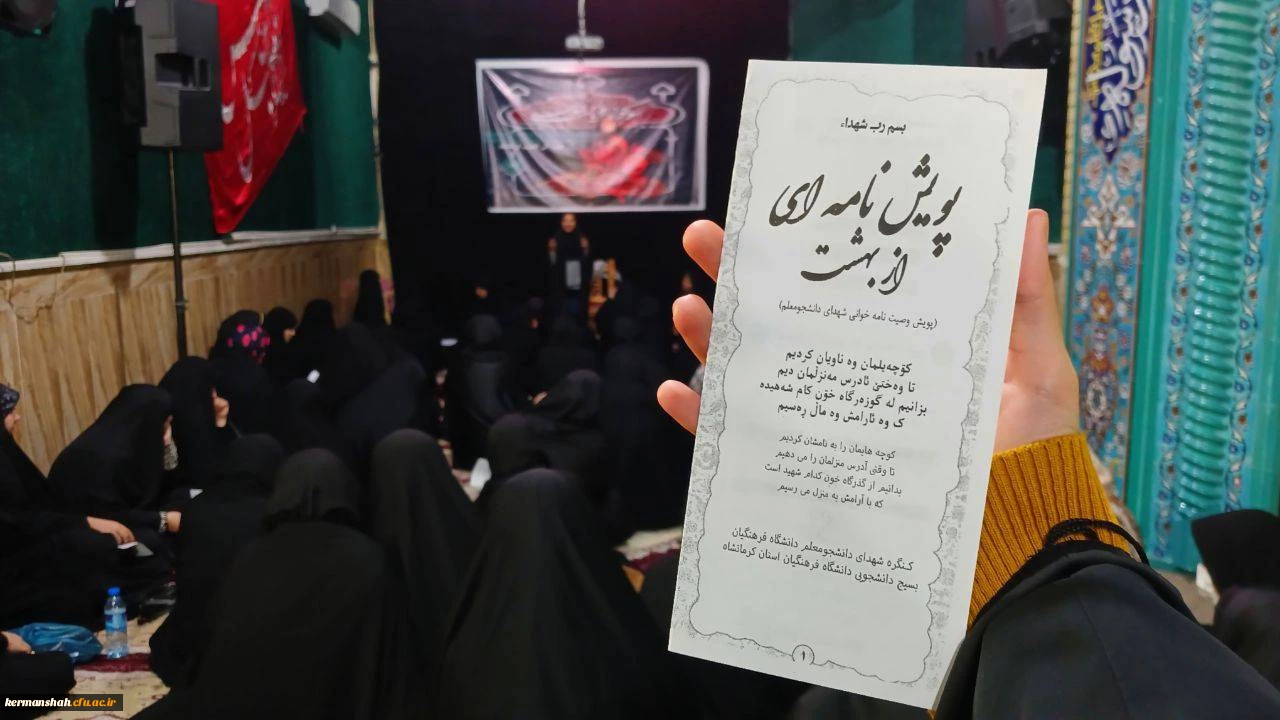 بسم رب شهداء
پویش نامه ای
از بهشت
(پویش وصیت نامه خوانی شهدای دانشجومعلم)
کۆچەیلمان وە ناویان کردیم
تا وەختێ ئادرس مەنزڵمان دیم
بزانیم لە گوزەرگاە خۆن کام شەهیدە
ک وە ئارامش وە ماڵ ڕەسیم
کوچه هایمان را به نامشان کردیم
تا وقتی آدرس منزلمان را می دهیم
بدانیم از گذرگاه خون کدام شهید است
که با آرامش به منزل می رسیم
کنگره شهدای دانشجومعلم دانشگاه فرهنگیان
بسیج دانشجویی دانشگاه فرهنگیان استان کرمانشاه
۱
kermanshah.cfu.ac.ir